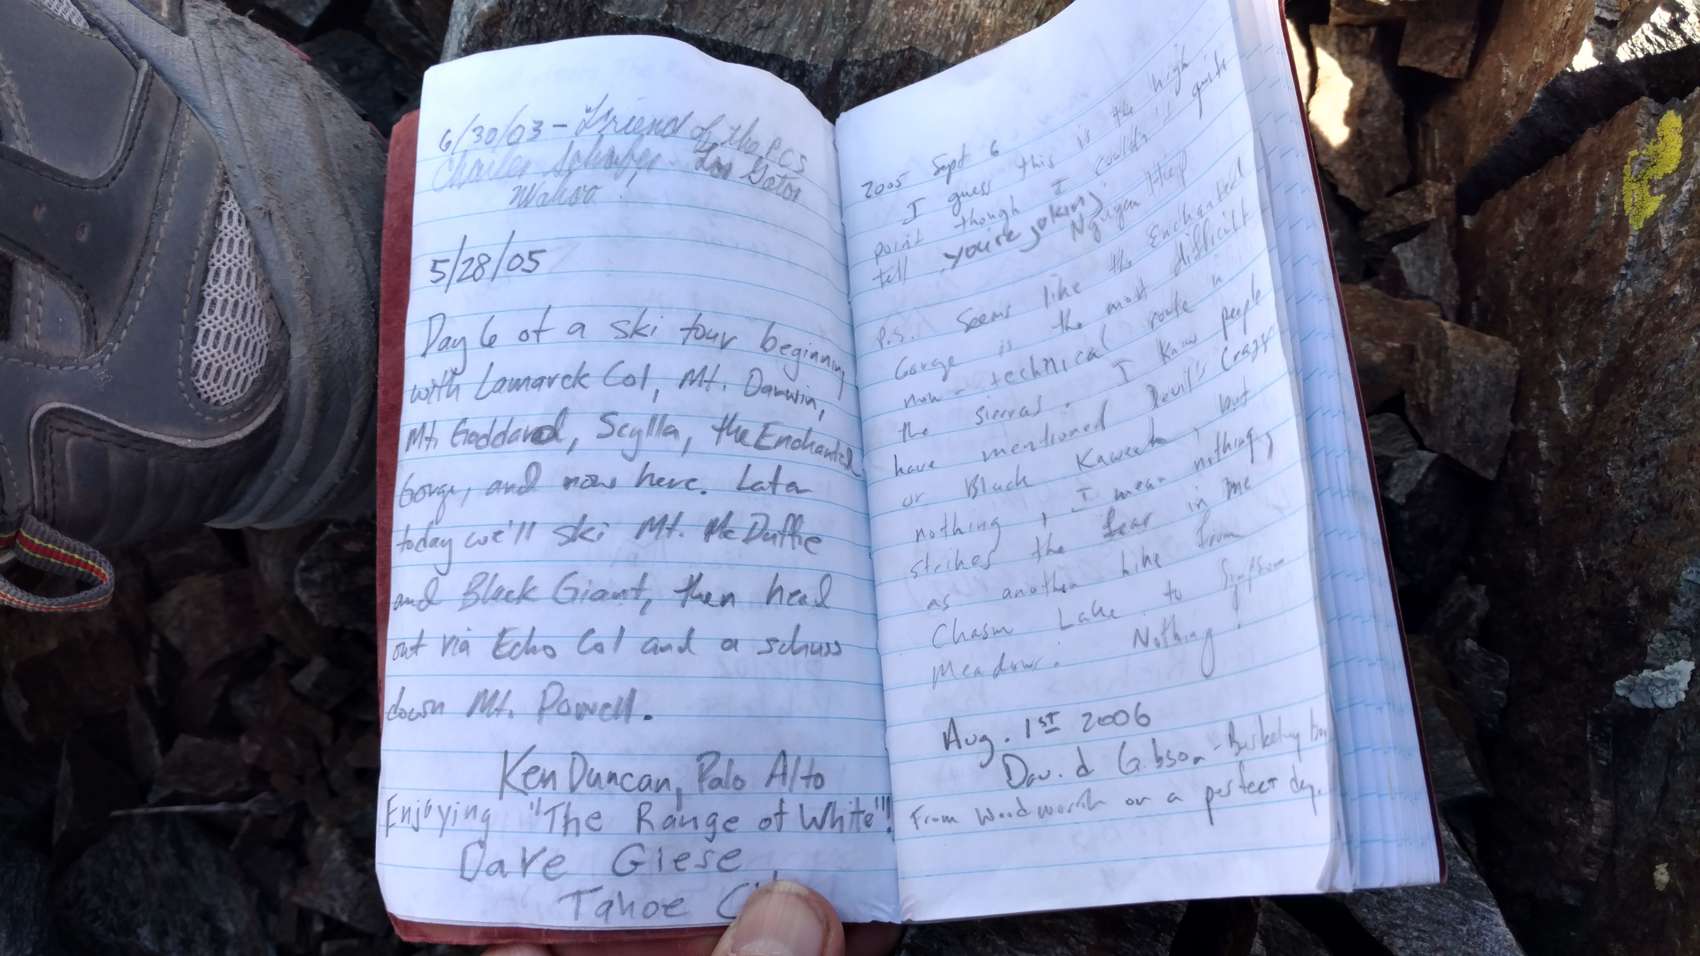 6/30/03 - Friend of the PCS
Charles Schafer - Los Gatos
Wahoo!
5/28/05
Day 6 of a ski tour beginning
with Lamarck Col, Mt. Darwin,
Mt. Goddard, Scylla, the Enchanted
Gorge, and now here. Later
today we'll ski Mt. McDuffie
and Black Giant, then head
out via Echo Col and a schuss
down Mt. Powell.
Ken Duncan, Palo Alto
Enjoying "The Range of White"!
Dave Giese
Tahoe
2005 Sept 6
I guess this is the high
point though I couldn't quite
tell. you're joking
Nguyen Hiep
P.S. Seems like the Enchanted
Gorge is the most difficult
non-technical route in
the sierras. I know people
have mentioned Devil's Crags
or Black Kaweah, but
nothing, I mean nothing,
strikes the fear in me
as another hike from
Chasm Lake to Simpson
Meadow. Nothing!
Aug. 1st 2006
David Gibson - Berkeley
From Woodworth on a perfect day.